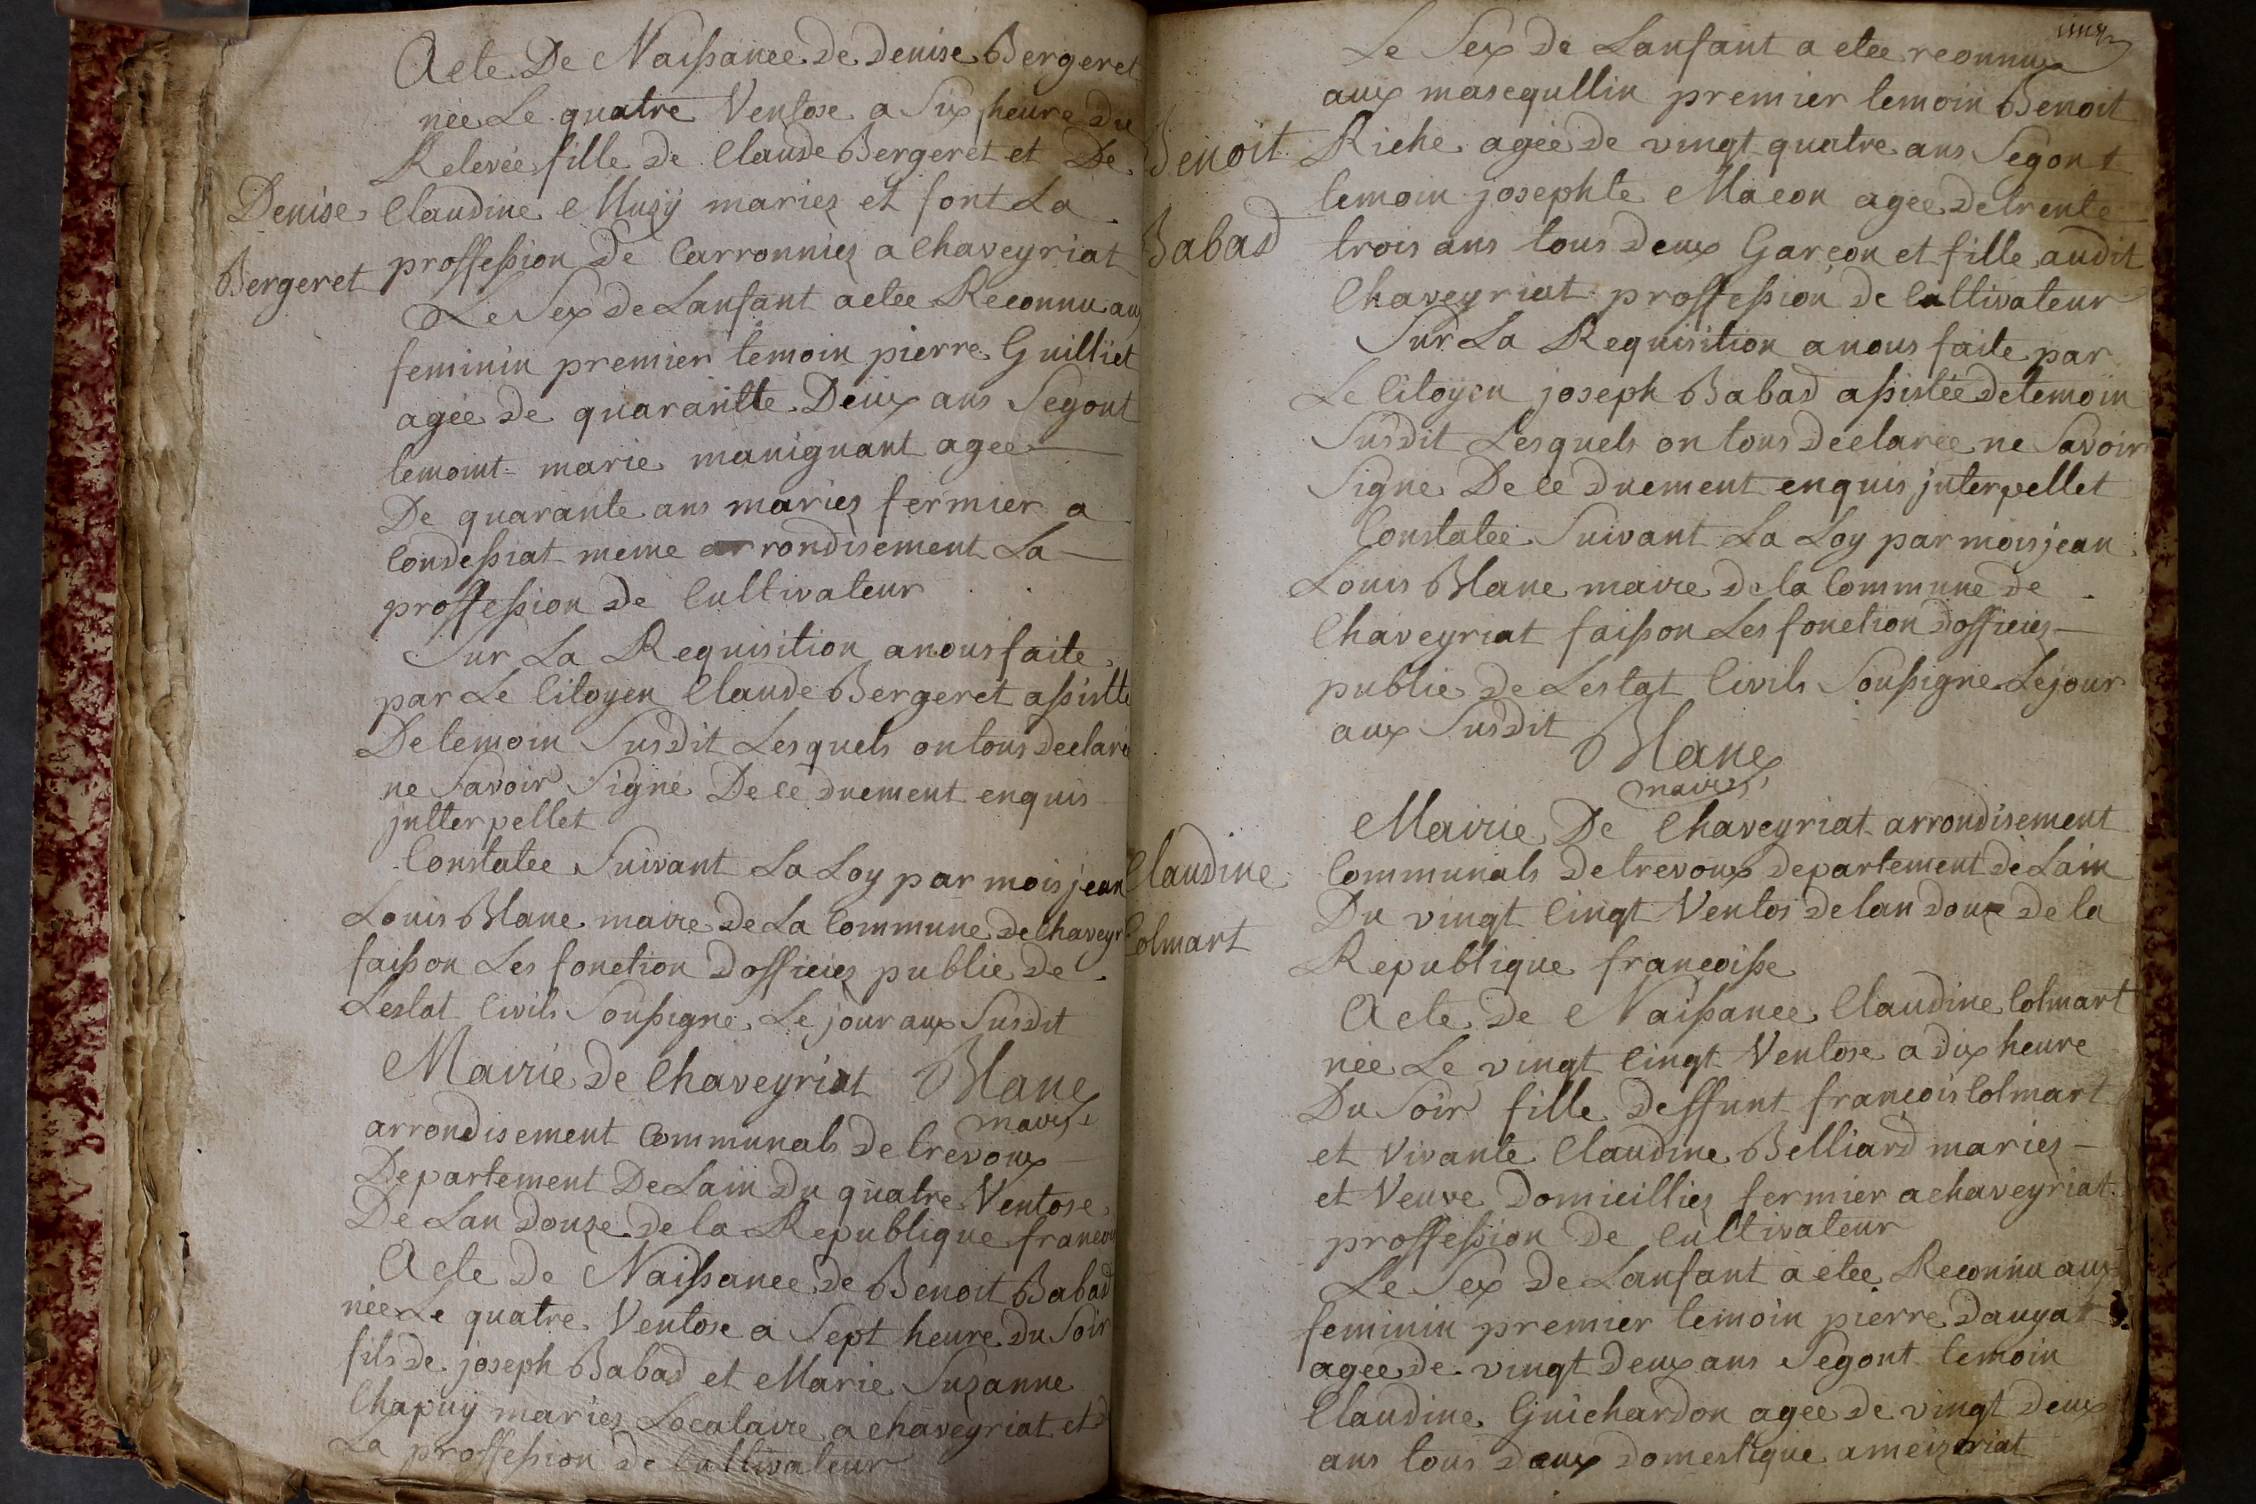 Acte De Naissance de Denise Bergeret
née Le quatre Ventose a Six heure du
Relevée fille de Claude Bergeret et De
Denise
Claudine Musÿ mariez et font La
Bergeret
proffession De Carronniez a Chaveyriat
Le Sex de Lanfant a etee Reconnu aux
feminin premier temoin pierre Guilliet
agée de quarantte Deux ans Segont
temoint marie manignant agee
De quarante ans mariez fermier a
Condessiat meme arrondisement La
proffession de Cultivateur
Sur La Requisition a nous faite
par Le Citoyen Claude Bergeret assistte
De temoin Susdit Lesquels on tous declaré
ne Savoir Signé De ce duement enquis
jntterpellet
Constatee Suivant La Loy par mois jean
Louis Blanc maire de La Commune de Chaveyr
faisson Les fonction dofficiez public de
Lestat Civils Soussigne Le jour aux Susdit
Mairie de Chaveyriat Blanc
maire
arrondisement Communals de trevoux
Departement De Lain du quatre Ventose
De Lan douze de la Republique francoi
Acte de Naissance de Benoit Babad
née Le quatre Ventose a Sept heure du Soir
fils de joseph Babad et Marie Suzanne
Chapuy mariez Locataire a chaveyriat et d
La proffession de Cultivateur
cinq
Le Sex de Lanfant a etee reonnux
aux masequllin premier temoin Benoit
Benoit
Riche agée de vingt quatre ans Segont
temoin josephte Macon agee de trente
Babad
trois ans tous deux Garçon et fille audit
Chaveyriat proffession de Cultivateur
Sur La Requisition a nous faite par
Le Citoyen joseph Babad assistée de temoin
Susdit Lesquels on tous declarée ne Savoir
Signe De ce duement enquis jnterpellet
Constatée Suivant La Loy par mois jean
Louis Blanc maire de la Commune de
Chaveyriat faisson Les fonction dofficiez
public de Lestat Civils Soussigne Le jour
aux Susdit
Blanc
maire
Mairie De Chaveyriat arrondisement
Claudine
Communals de trevoux departement de Lain
Colmart
Du vingt Cinqt Ventos de lan douze de la
Republique francoisse
Acte de Naissance Claudine Colmart
née Le vingt Cinqt Ventose a dix heure
Du Soir fille deffunt francois Colmart
et Vivante Claudine Belliard mariez
et Veuve domicilliez fermier a chaveyriat
proffession de Cultivateur
Le Sex de Lanfant a etee Reconnu aux
feminin premier temoin pierre
agee de vingt deux ans Segont temoin
Claudine Guichardon agee de vingt deux
ans tous deux domestique a meizeriat